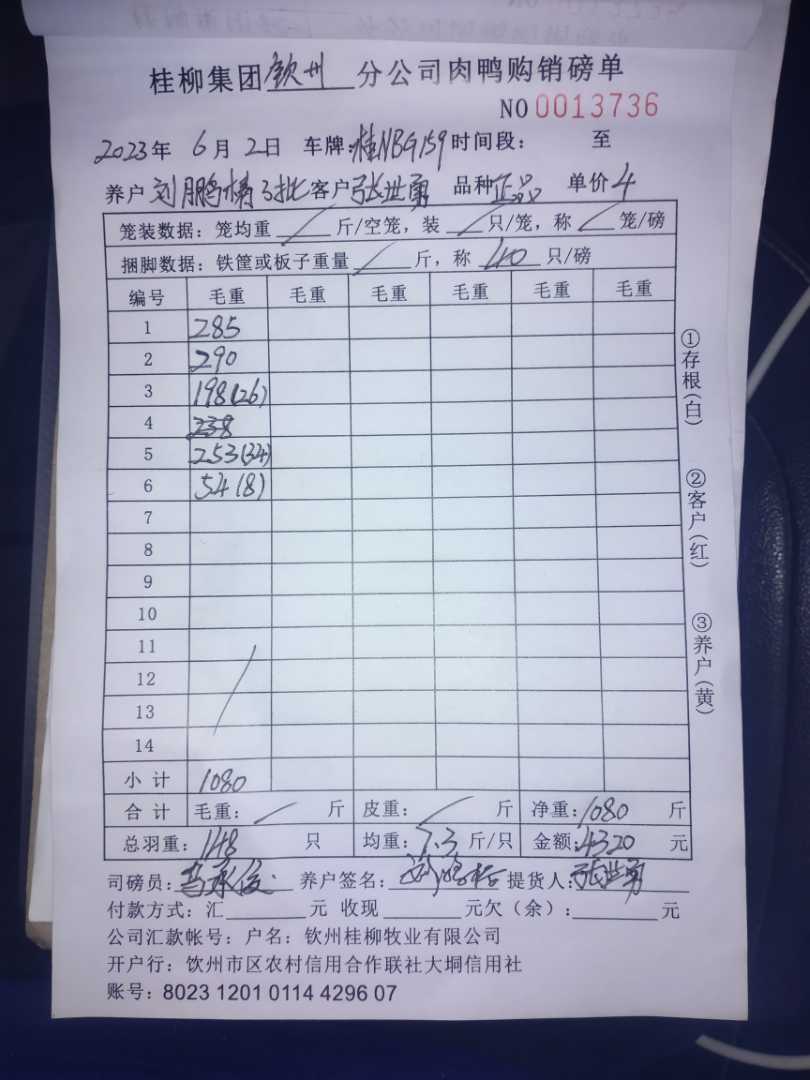 桂柳集团钦州分公司肉鸭购销磅单
NO 0013736
2023年 6月 2日 车牌:桂NBG159 时间段: 至
养户 刘鹏 批 客户 张世勇 品种 正品 单价 4
笼装数据: 笼均重 / 斤/空笼, 装 / 只/笼, 称 / 笼/磅
捆脚数据: 铁筐或板子重量 / 斤, 称 40 只/磅
编号 毛重 毛重 毛重 毛重 毛重 毛重
1 285
2 290
3 198(26)
4 238
5 253(34)
6 54(8)
7
8
9
10
11
12
13
14
小计 1080
合计 毛重: / 斤 皮重: / 斤 净重: 1080 斤
总羽重: 148 只 均重: 7.3 斤/只 金额: 4320 元
司磅员: 养户签名: 提货人: 张世勇
付款方式: 汇 元 收现 元欠(余): 元
公司汇款帐号: 户名: 钦州桂柳牧业有限公司
开户行: 钦州市区农村信用合作联社大垌信用社
账号: 8023 1201 0114 4296 07
①存根(白)
②客户(红)
③养户(黄)